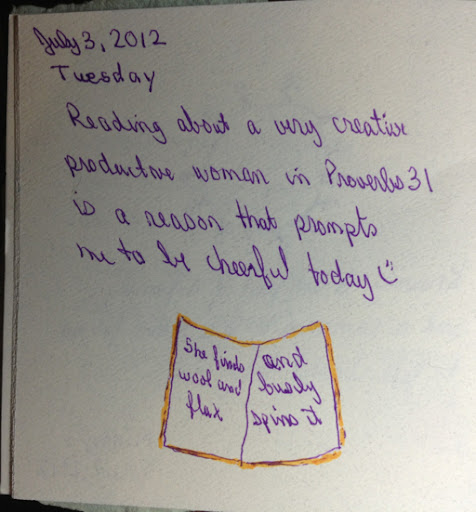 July 3, 2012
Tuesday
Reading about a very creative
productive woman in Proverbs 31
is a reason that prompts
me to be cheerful today
She finds
wool and
flax
and
busily
spins it